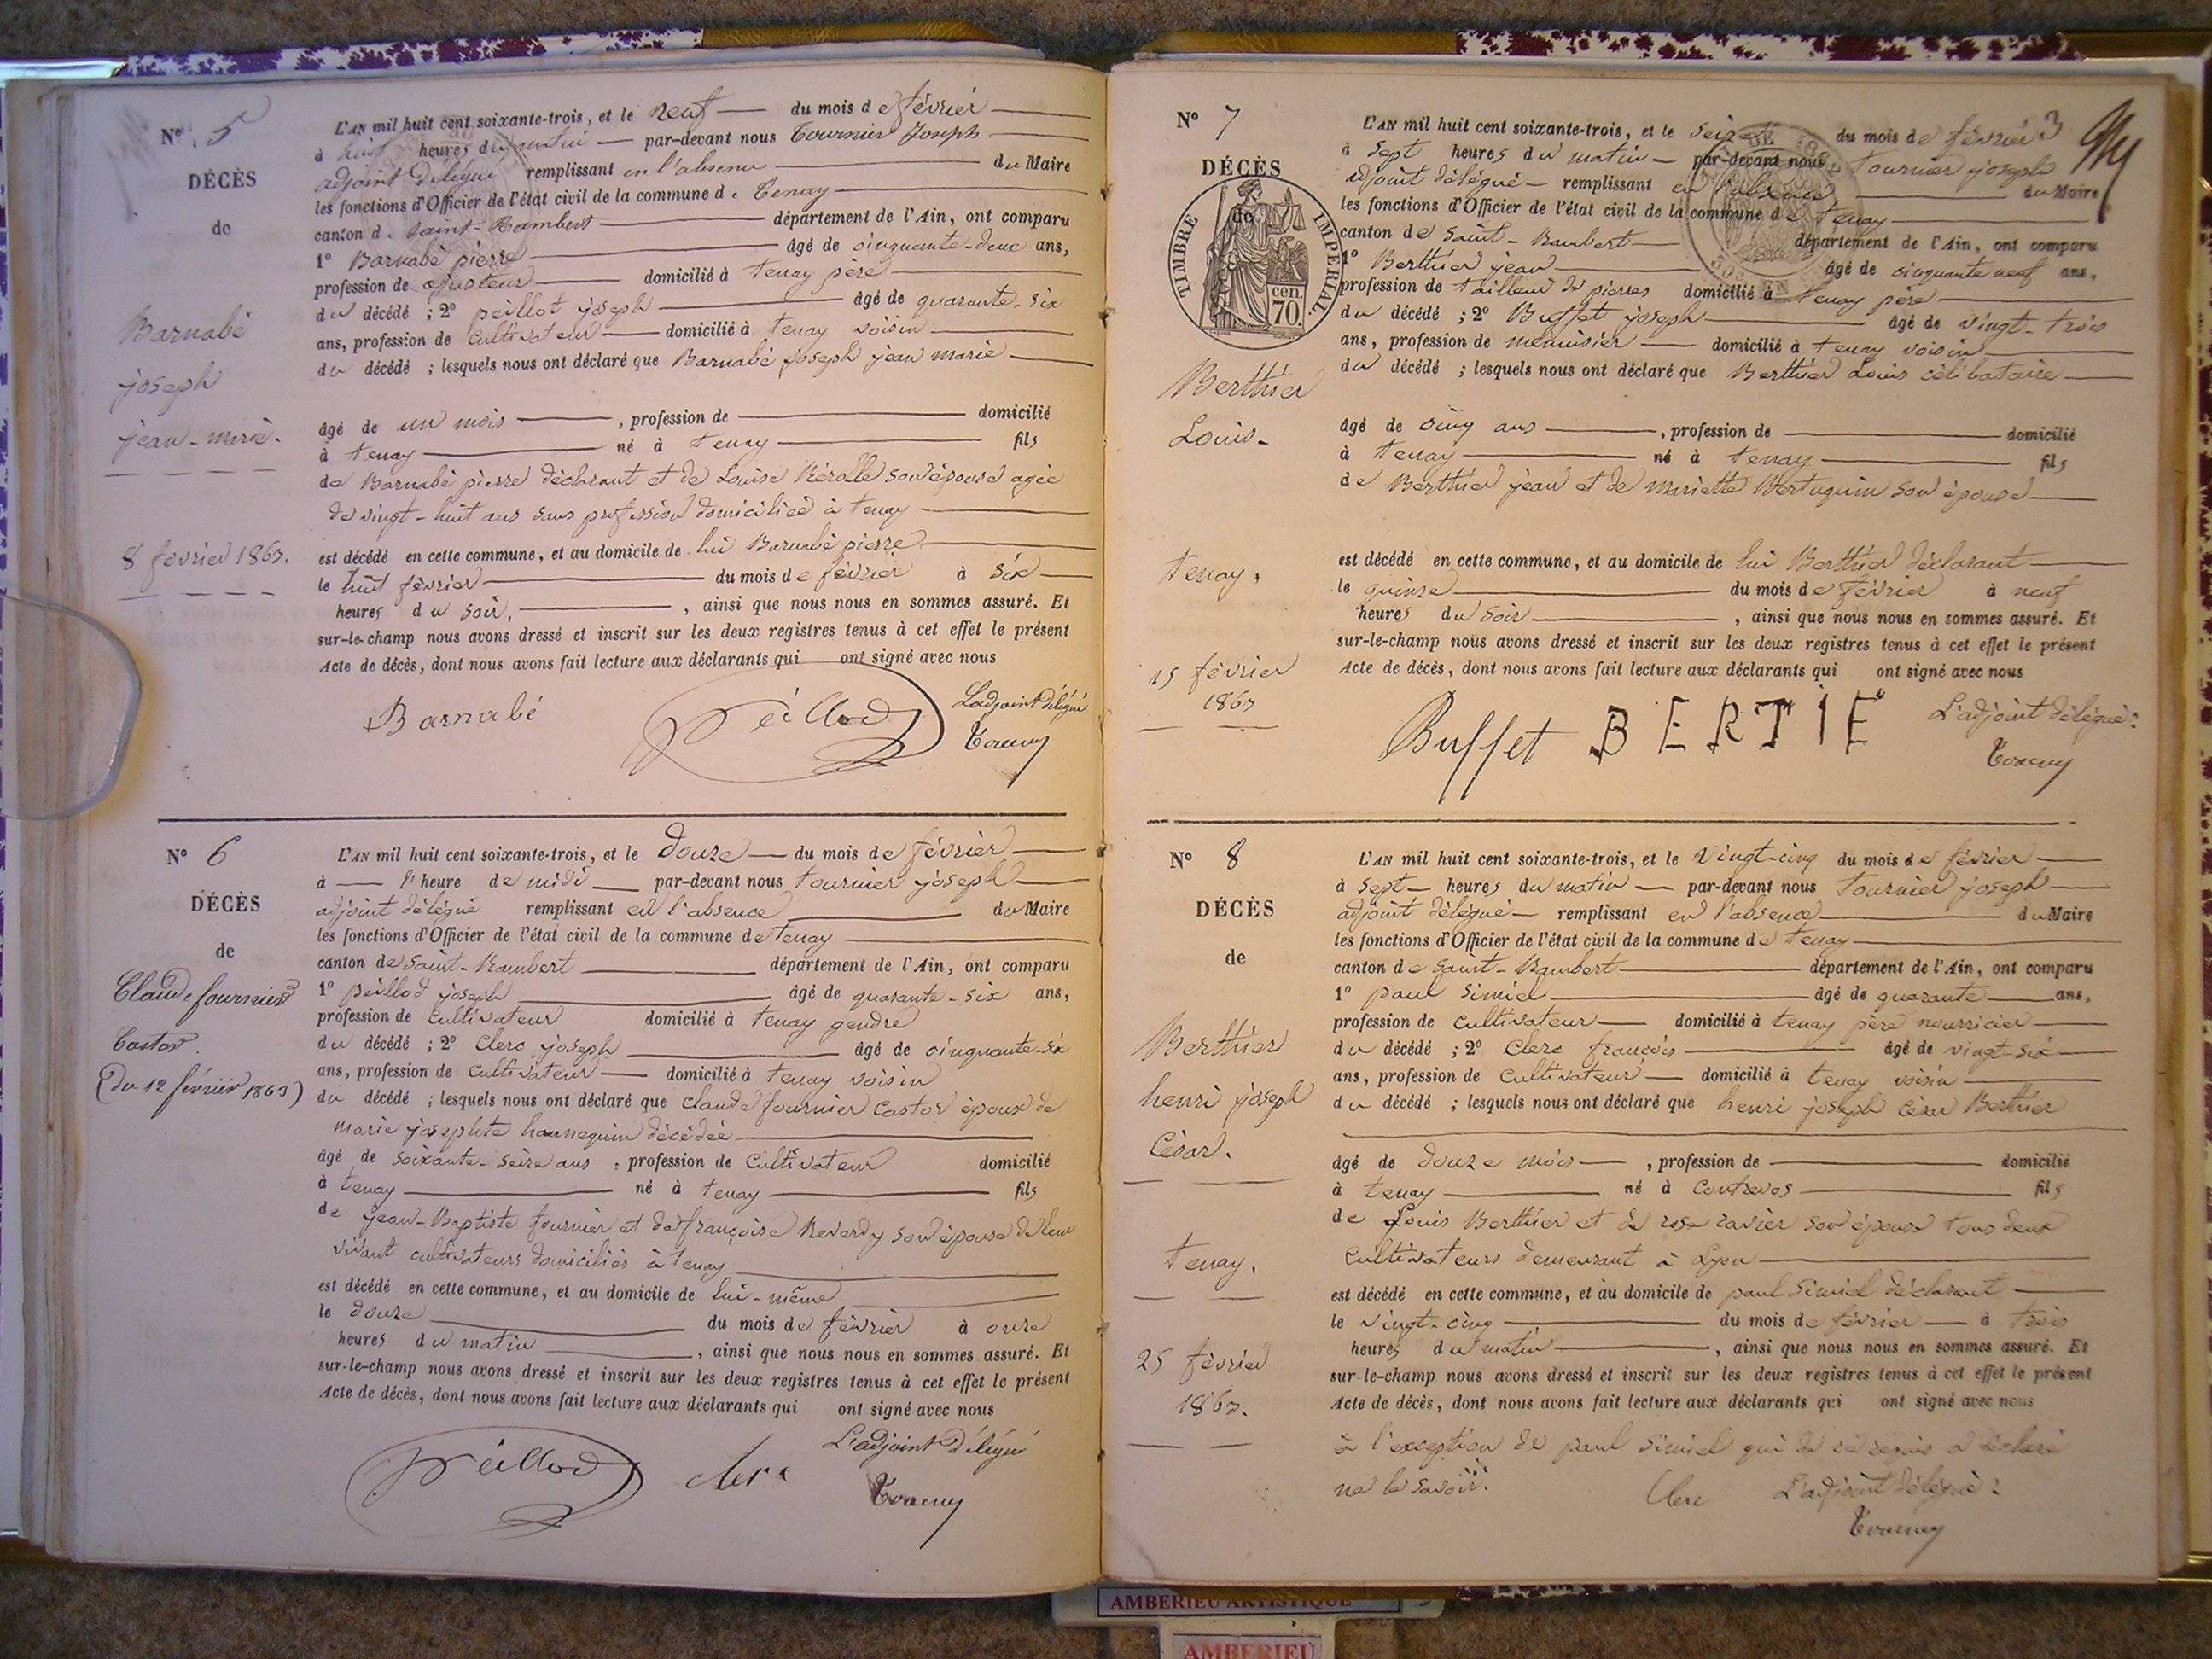 Nº 5
DÉCÈS
de
Barnabé
joseph
jean-marie.
8 février 1863.
L'AN mil huit cent soixante-trois, et le neuf du mois de février
à huit heures du matin par-devant nous Tournier Joseph
adjoint délégué remplissant en l'absence du Maire
les fonctions d'Officier de l'état civil de la commune de Tenay
canton de Saint-Rambert département de l'Ain, ont comparu
1º Barnabé pierre âgé de cinquante-deux ans,
profession de ajusteur domicilié à tenay père
du décédé ; 2º peillot joseph âgé de quarante-six
ans, profession de cultivateur domicilié à tenay voisin
du décédé ; lesquels nous ont déclaré que Barnabé joseph jean marie
âgé de un mois , profession de domicilié
à tenay né à tenay fils
de Barnabé pierre déclarant et de Louise son épouse agée
de vingt-huit ans sans profession domiciliée à tenay
est décédé en cette commune, et au domicile de lui Barnabé pierre
le huit février du mois de février à six
heures du soir, , ainsi que nous nous en sommes assuré. Et
sur-le-champ nous avons dressé et inscrit sur les deux registres tenus à cet effet le présent
Acte de décès, dont nous avons fait lecture aux déclarants qui ont signé avec nous
Barnabé Peillod L'adjoint délégué
Nº 6
DÉCÈS
de
Claude fournier
Castor.
(Du 12 février 1863)
L'AN mil huit cent soixante-trois, et le douze du mois de février
à l'heure de midi par-devant nous tournier joseph
adjoint délégué remplissant en l'absence du Maire
les fonctions d'Officier de l'état civil de la commune de tenay
canton de Saint-Rambert département de l'Ain, ont comparu
1º peillod joseph âgé de quarante-six ans,
profession de cultivateur domicilié à tenay gendre
du décédé ; 2º Clerc joseph âgé de cinquante-six
ans, profession de cultivateur domicilié à tenay voisin
du décédé ; lesquels nous ont déclaré que claude fournier Castor époux de
marie josephte hannequin décédée
âgé de soixante-seize ans , profession de cultivateur domicilié
à tenay né à tenay fils
de jean-Baptiste fournier et de françoise Reverdy son épouse de leur
vivant cultivateurs domiciliés à tenay
est décédé en cette commune, et au domicile de lui-même
le douze du mois de février à onze
heures du matin , ainsi que nous nous en sommes assuré. Et
sur-le-champ nous avons dressé et inscrit sur les deux registres tenus à cet effet le présent
Acte de décès, dont nous avons fait lecture aux déclarants qui ont signé avec nous
Peillod clerc L'adjoint délégué
Nº 7
DÉCÈS
de
TIMBRE IMPERIAL
70 cen.
Berthier
Louis.
tenay.
15 février
1863
3
L'AN mil huit cent soixante-trois, et le seize du mois de février
à sept heures du matin par-devant nous Tournier joseph
adjoint délégué remplissant en l'absence du Maire
les fonctions d'Officier de l'état civil de la commune de tenay
canton de saint-Rambert département de l'Ain, ont comparu
1º Berthier jean âgé de cinquante neuf ans,
profession de tailleur de pierres domicilié à tenay père
du décédé ; 2º Buffet joseph âgé de vingt-trois
ans, profession de menuisier domicilié à tenay voisin
du décédé ; lesquels nous ont déclaré que Berthier Louis célibataire
âgé de cinq ans , profession de domicilié
à tenay né à tenay fils
de Berthier jean et de mariette son épouse
est décédé en cette commune, et au domicile de lui Berthier déclarant
le quinze du mois de février à neuf
heures du soir , ainsi que nous nous en sommes assuré. Et
sur-le-champ nous avons dressé et inscrit sur les deux registres tenus à cet effet le présent
Acte de décès, dont nous avons fait lecture aux déclarants qui ont signé avec nous
Buffet BERTIE L'adjoint délégué :
Nº 8
DÉCÈS
de
Berthier
henri joseph
César.
tenay.
25 février
1863.
L'AN mil huit cent soixante-trois, et le vingt-cinq du mois de février
à sept heures du matin par-devant nous Tournier joseph
adjoint délégué remplissant en l'absence du Maire
les fonctions d'Officier de l'état civil de la commune de tenay
canton de saint-Rambert département de l'Ain, ont comparu
1º paul simiel âgé de quarante ans,
profession de cultivateur domicilié à tenay père nourricier
du décédé ; 2º Clerc françois âgé de vingt-six
ans, profession de cultivateur domicilié à tenay voisin
du décédé ; lesquels nous ont déclaré que henri joseph César Berthier
âgé de douze mois , profession de domicilié
à tenay né à Contrevos fils
de Louis Berthier et de rose ravier son épouse tous deux
cultivateurs demeurant à Lyon
est décédé en cette commune, et au domicile de paul simiel déclarant
le vingt-cinq du mois de février à trois
heures du matin , ainsi que nous nous en sommes assuré. Et
sur-le-champ nous avons dressé et inscrit sur les deux registres tenus à cet effet le présent
Acte de décès, dont nous avons fait lecture aux déclarants qui ont signé avec nous
à l'exception de paul simiel qui de ce requis a déclaré
ne le savoir.
Clerc L'adjoint délégué :
AMBERIEU ARTISTIQUE
AMBERIEU